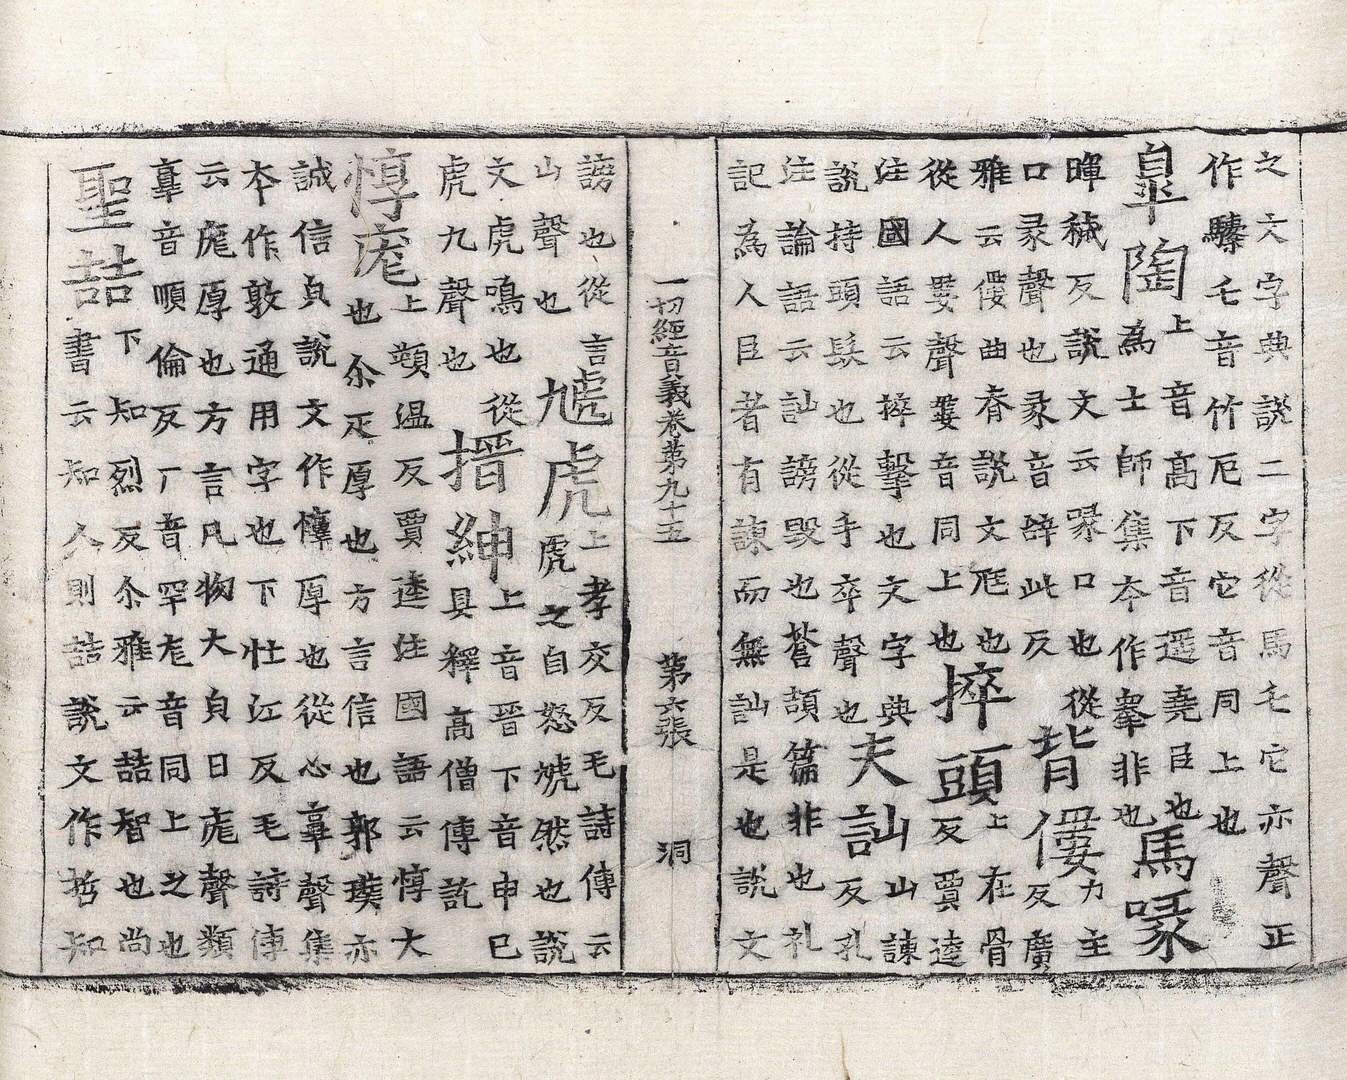 之文字典說二字從馬乇它亦聲正
作驝乇音竹厄反它音同上也
皐陶上音高下音遥堯臣也
為士師集本作睾非也馬喙
暉穢反說文云喙口也從
口彖聲也彖音辥此反背僂力主反廣
雅云僂曲脊說文尫也
從人婁聲婁音同上也捽頭上在骨反賈逵
注國語云捽擊也文字典
說持頭髮也從手卒聲也夫訕山諫反孔
注論語云訕謗毀也蒼頡篇非也礼
記為人臣者有諫而無訕是也說文
一切經音義卷第九十五 第六張 洞
謗也從言
山聲也虓虎上孝交反毛詩傳云
虎之自怒虓然也說
文虎鳴也從
虎九聲也搢紳上音晉下音申已
具釋高僧傳訖
惇庬上頓温反賈逵注國語云惇大
也尒疋厚也方言信也郭璞亦
誠信皃說文作惇厚也從心𦎫聲集
本作敦通用字也下牡江反毛詩傳
云庬厚也方言凡物大皃曰庬聲類
𦎫音順倫反厂音罕尨音同上之也
聖喆下知烈反尒雅云喆智也尚
書云知人則喆說文作哲知